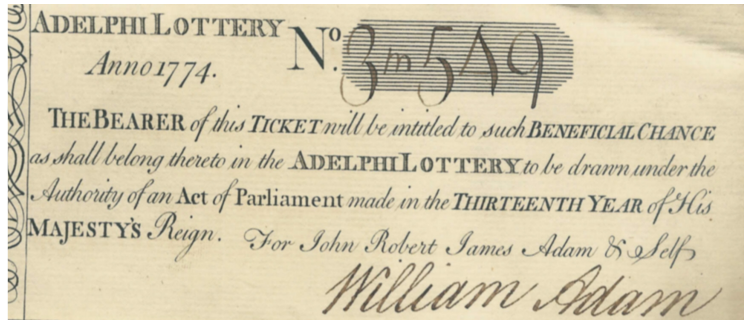 ADELPHI LOTTERY No. 3m549
Anno 1774.
THE BEARER of this TICKET will be intitled to such BENEFICIAL CHANCE
as shall belong thereto in the ADELPHI LOTTERY to be drawn under the
Authority of an Act of Parliament made in the THIRTEENTH YEAR of His
MAJESTY'S Reign. For John Robert James Adam & Self
William Adam